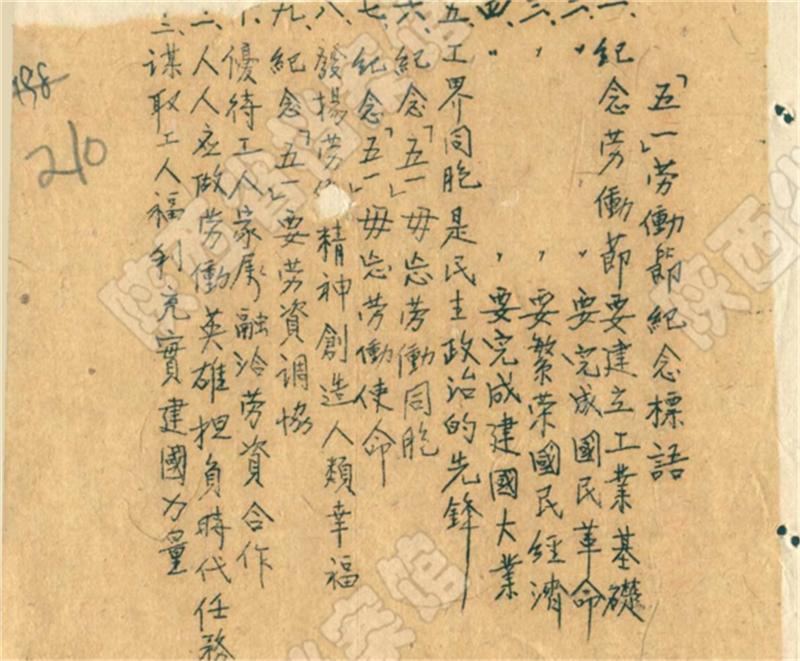 「五一」劳働節紀念標語
一、紀念劳働節要建立工業基礎
二、〃 〃 要完成國民革命
三、〃 〃 要繁荣國民經濟
四、〃 〃 要完成建國大業
五、工界同胞是民主政治的先鋒
六、紀念「五一」毋忘劳働同胞
七、紀念「五一」毋忘劳働使命
八、發揚劳 精神創造人類幸福
九、紀念「五一」要劳資调协
十、優待工人家属融洽劳資合作
二、人人应做劳働英雄担負時代任務
三、謀取工人福利充實建國力量
210
陕西省